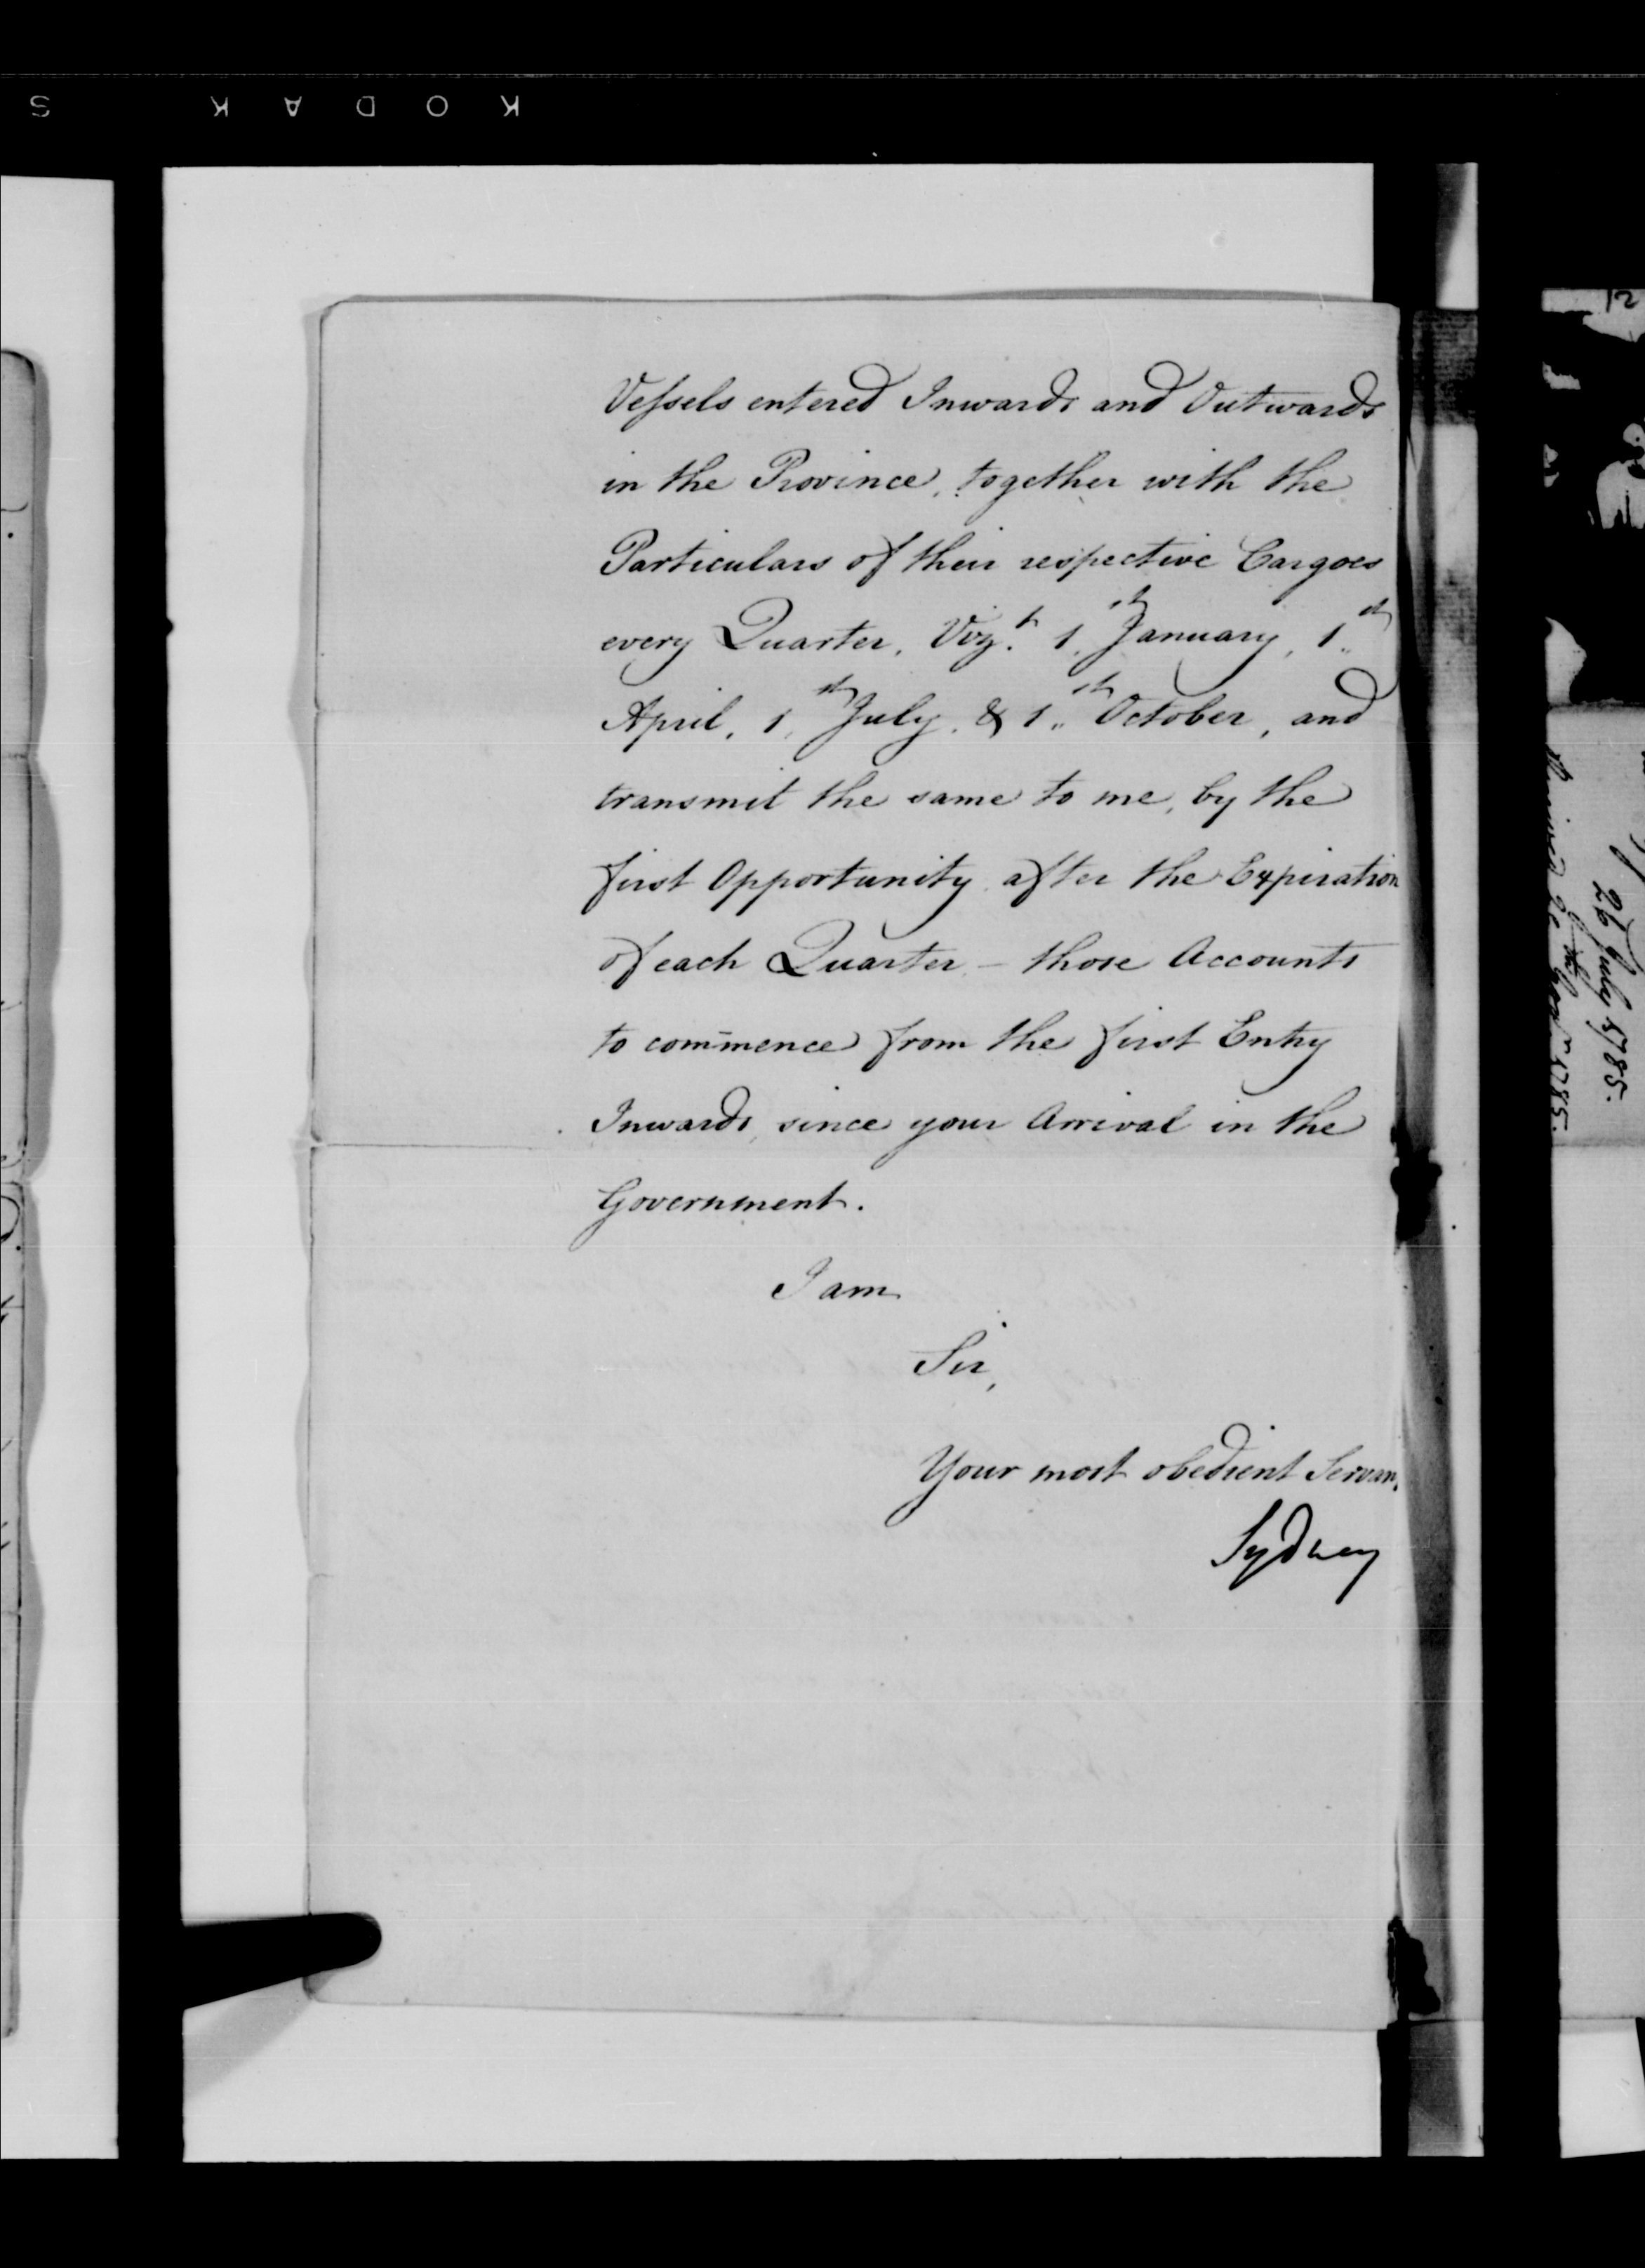 KODAK S
Vessels entered Inwards and Outwards
in the Province, together with the
Particulars of their respective Cargoes
every Quarter, Vizt. 1st January, 1st
April, 1st July, & 1st October, and
transmit the same to me, by the
first Opportunity after the Expiration
of each Quarter – those Accounts
to com̄ence from the first Entry
Inwards, since your Arrival in the
Government.
I am
Sir,
Your most obedient Servan
Sydney
12
26 July 1785.
1785.